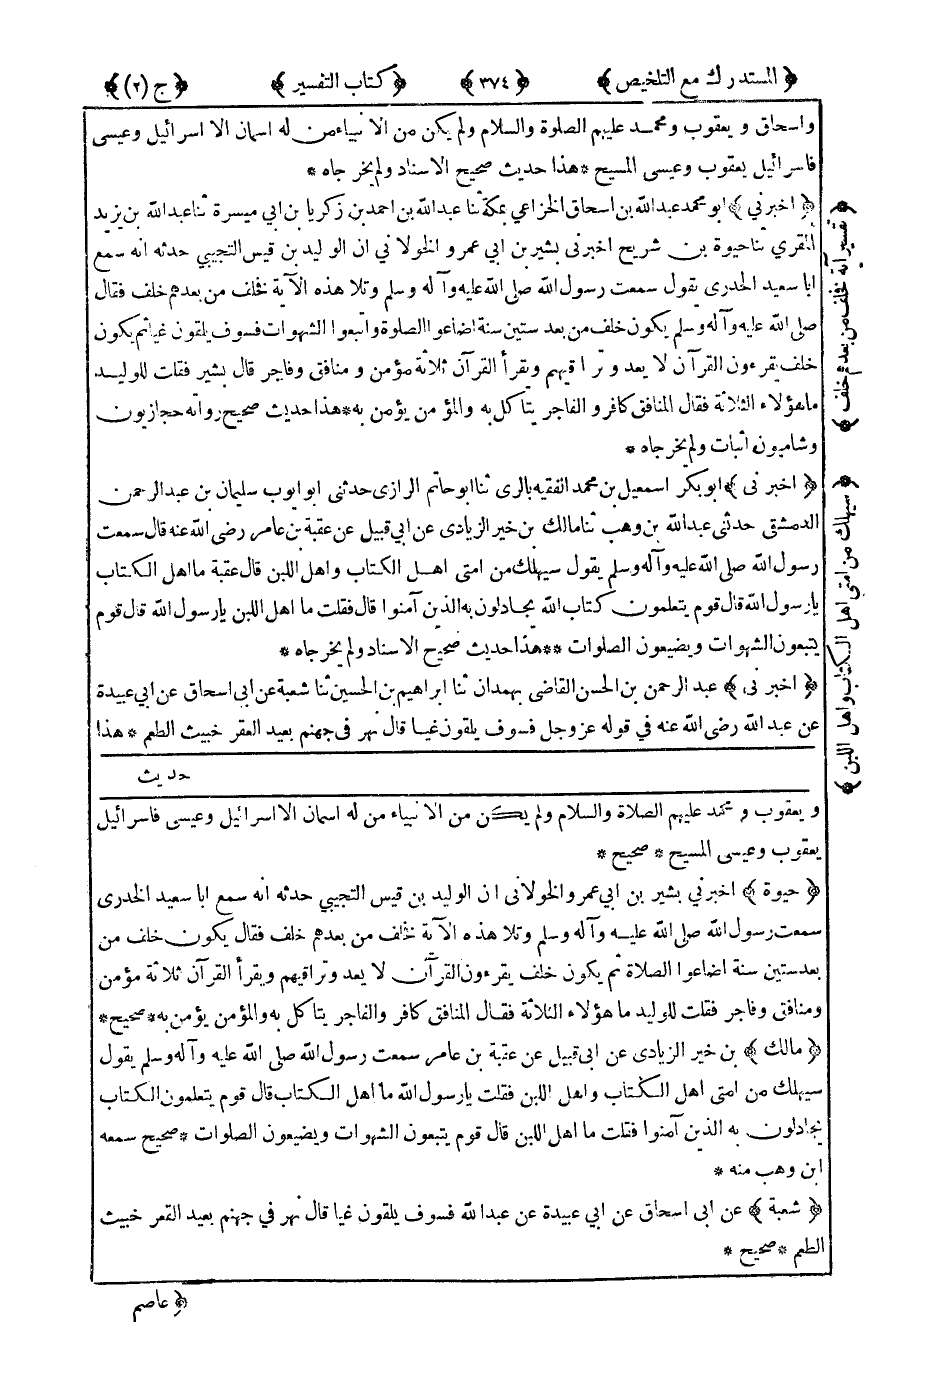 ﴿ المستدرك مع التلخيص ﴾ ﴿ ٣٧٤ ﴾ ﴿ كتاب التفسير ﴾ ﴿ ج (٢) ﴾
واسحاق و يعقوب ومحمد عليهم الصلوة والسلام ولم يكن من الانبياء من له اسمان الا اسرائيل وعيسى
فاسرائيل يعقوب وعيسى المسيح * هذا حديث صحيح الاسناد ولم يخرجاه *
﴿ اخبرني ﴾ ابو محمد عبدالله بن اسحاق الخزاعي بمكة ثنا عبدالله بن احمد بن زكريا بن ابي ميسرة ثنا عبدالله بن يزيد
المقري ثنا حيوة بن شريح اخبرنى بشير بن ابي عمرو الخولاني ان الوليد بن قيس التجيبي حدثه انه سمع
ابا سعيد الخدرى يقول سمعت رسول الله صلى الله عليه وآله وسلم وتلا هذه الآية فخلف من بعدهم خلف فقال
صلى الله عليه وآله وسلم يكون خلف من بعد ستين سنة اضاعوا الصلوة واتبعوا الشهوات فسوف يلقون غيا ثم يكون
خلف يقرءون القرآن لا يعدو تراقيهم ويقرأ القرآن ثلاثة مؤمن ومنافق وفاجر قال بشير فقلت للوليد
ما هؤلاء الثلاثة فقال المنافق كافر والفاجر يتاكل به والمؤمن يؤمن به * هذا حديث صحيح رواته حجازيون
وشاميون اثبات ولم يخرجاه *
﴿ اخبرنى ﴾ ابوبكر اسمعيل بن محمد الفقيه بالرى ثنا ابوحاتم الرازى حدثنى ابو ايوب سليمان بن عبدالرحمن
الدمشقى حدثنى عبدالله بن وهب ثنا مالك بن خير الزيادى عن ابي قبيل عن عقبة بن عامر رضى الله عنه قال سمعت
رسول الله صلى الله عليه وآله وسلم يقول سيهلك من امتى اهل الكتاب واهل اللبن قال عقبة ما اهل الكتاب
يا رسول الله قال قوم يتعلمون كتاب الله يجادلون به الذين آمنوا قال فقلت ما اهل اللبن يا رسول الله قال قوم
يتبعون الشهوات ويضيعون الصلوات ** هذا حديث صحيح الاسناد ولم يخرجاه *
﴿ اخبرنى ﴾ عبد الرحمن بن الحسن القاضى بهمدان ثنا ابراهيم بن الحسين ثنا شعبة عن ابى اسحاق عن ابي عبيدة
عن عبد الله رضى الله عنه في قوله عز وجل فسوف يلقون غيا قال نهر فى جهنم بعيد العقر خبيث الطعم * هذا
حديث
و يعقوب و محمد عليهم الصلاة والسلام ولم يكن من الانبياء من له اسمان الا اسرائيل وعيسى فاسرائيل
يعقوب وعيسى المسيح * صحيح *
﴿ حيوة ﴾ اخبرني بشير بن ابي عمرو الخولانى ان الوليد بن قيس التجيبي حدثه انه سمع ابا سعيد الخدرى
سمعت رسول الله صلى الله عليه وآله وسلم وتلا هذه الآية فخلف من بعدهم خلف فقال يكون خلف من
بعد ستين سنة اضاعوا الصلاة ثم يكون خلف يقرءون القرآن لا يعدو تراقيهم ويقرأ القرآن ثلاثة مؤمن
ومنافق وفاجر فقلت للوليد ما هؤلاء الثلاثة فقال المنافق كافر والفاجر يتاكل به والمؤمن يؤمن به * صحيح *
﴿ مالك ﴾ بن خير الزيادى عن ابى قبيل عن عقبة بن عامر سمعت رسول الله صلى الله عليه وآله وسلم يقول
سيهلك من امتى اهل الكتاب واهل اللبن فقلت يا رسول الله ما اهل الكتاب قال قوم يتعلمون الكتاب
يجادلون به الذين آمنوا فقلت ما اهل اللبن قال قوم يتبعون الشهوات ويضيعون الصلوات * صحيح سمعه
ابن وهب منه *
﴿ شعبة ﴾ عن ابى اسحاق عن ابي عبيدة عن عبدالله فسوف يلقون غيا قال نهر في جهنم بعيد القعر خبيث
الطعم * صحيح *
﴿ عاصم
﴿ تفسير آية فخلف من بعدهم خلف ﴾
﴿ سيهلك من امتى اهل الكتاب واهل اللبن ﴾